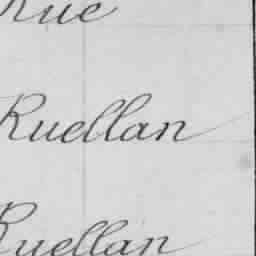 Rue
Ruellan
Ruellan